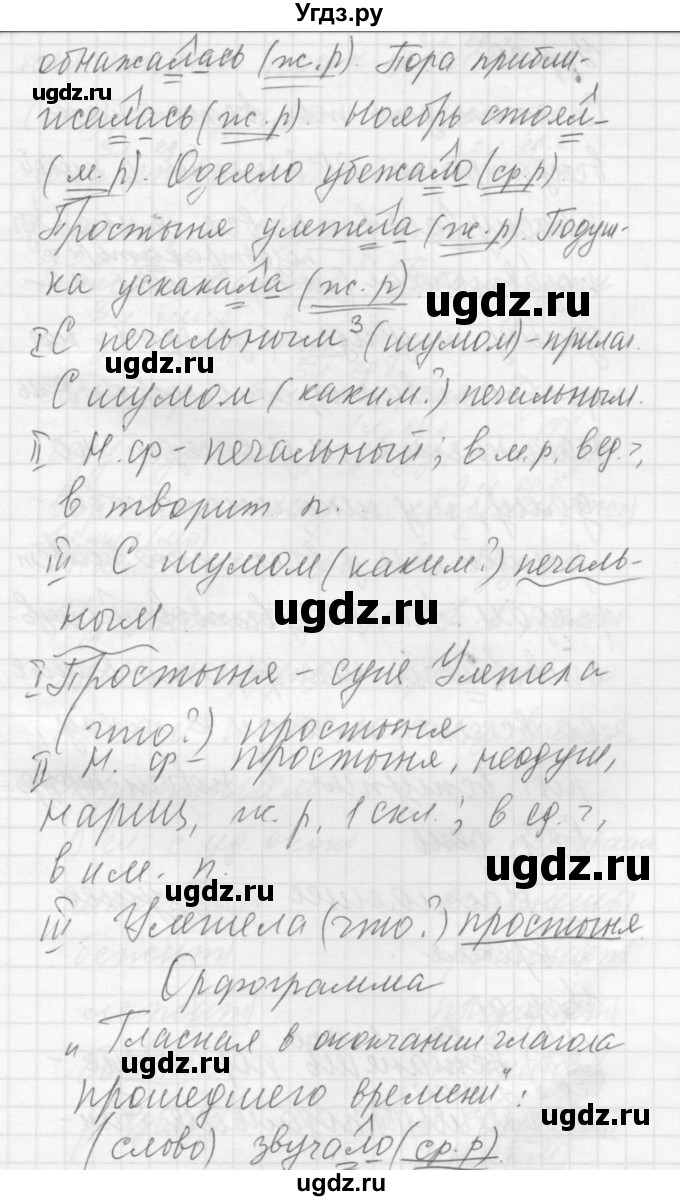 Угдз.ру
обнажалась (ж.р). Пора прибли-
ugdz.ru
жалась (ж.р) Ноябрь стоял-
(м.р). Одеяло убежало (ср.р).
Простыня улетела (ж.р). Подуш-
ка ускакала (ж.р)
ugdz.ru
I С печальным³ (шумом) - прилаг.
ugdz.ru
С шумом (каким?) печальным.
II Н.ф - печальный; в м.р, в ед.ч,
в творит. п.
III С шумом (каким?) печаль-
ugdz.ru
ным
I Простыня - сущ. Улетела
(что?) простыня
II Н. ф - простыня, неодуш,
нариц, ж. р, 1 скл.; в ед. ч,
в им. п.
ugdz.ru
ugdz.ru
III Улетела (что?) простыня.
Орфограмма
„Гласная в окончании глагола
ugdz.ru
прошедшего времени":
ugdz.ru
(слово) звучало (ср.р).
ugdz.ru